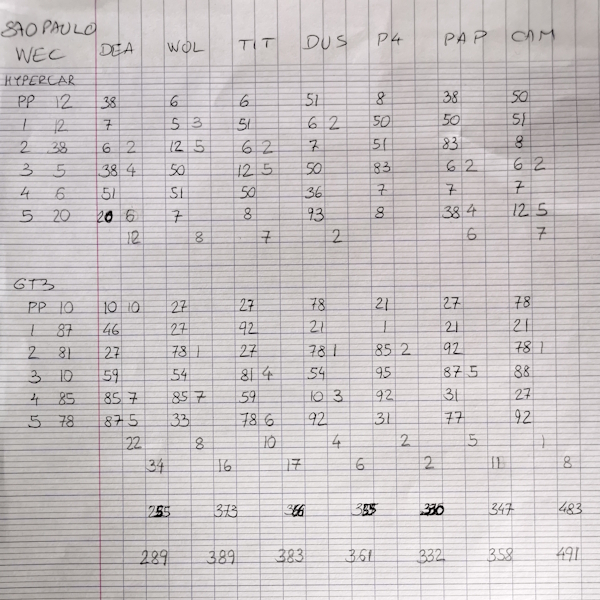 SAO PAULO
WEC DEA WOL TIT DUS P4 PAP CAM
HYPERCAR
PP 12 38 6 6 51 8 38 50
1 12 7 5 3 51 6 2 50 50 51
2 38 6 2 12 5 6 2 7 51 83 8
3 5 38 4 50 12 5 50 83 6 2 6 2
4 6 51 51 50 36 7 7 7
5 20 20 6 7 8 93 8 38 4 12 5
12 8 7 2 6 7
GT3
PP 10 10 10 27 27 78 21 27 78
1 87 46 27 92 21 1 21 21
2 81 27 78 1 27 78 1 85 2 92 78 1
3 10 59 54 81 4 54 95 87 5 88
4 85 85 7 85 7 59 10 3 92 31 27
5 78 87 5 33 78 6 92 31 77 92
22 8 10 4 2 5 1
34 16 17 6 2 11 8
255 373 366 355 330 347 483
289 389 383 361 332 358 491